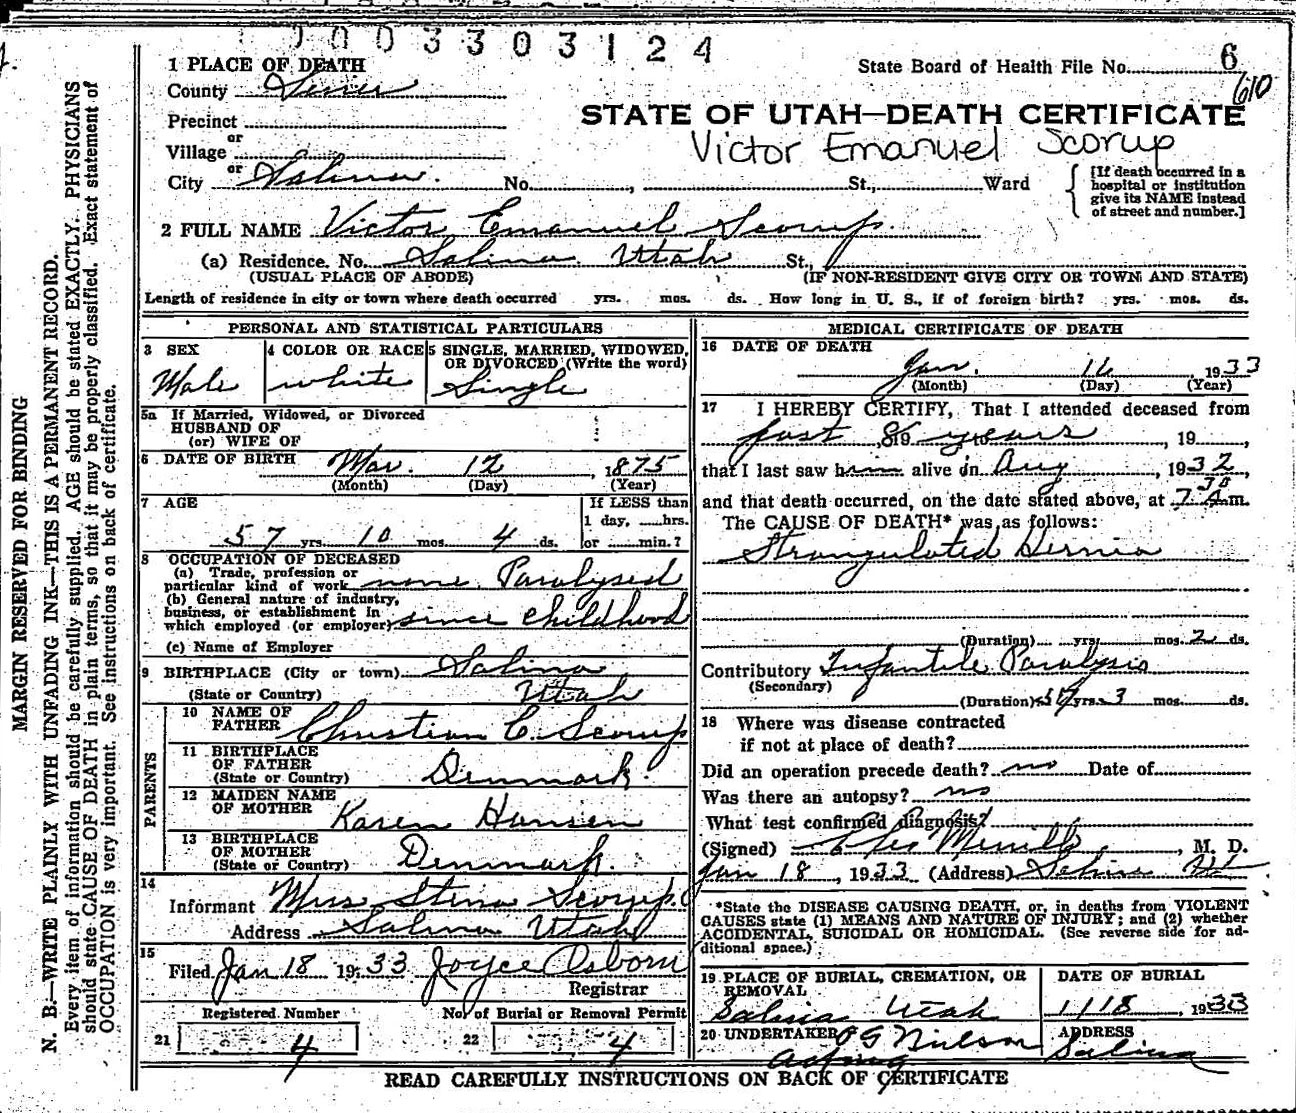 0003303124
1 PLACE OF DEATH
State Board of Health File No. 6
610
County Sevier
STATE OF UTAH—DEATH CERTIFICATE
Precinct
or
Victor Emanuel Scorup
Village
or
City Salina. No. , St., Ward
[If death occurred in a
hospital or institution
give its NAME instead
of street and number.]
2 FULL NAME Victor Emanuel Scorup.
(a) Residence. No. Salina. Utah St.,
(USUAL PLACE OF ABODE) (IF NON-RESIDENT GIVE CITY OR TOWN AND STATE)
Length of residence in city or town where death occurred yrs. mos. ds. How long in U. S., if of foreign birth? yrs. mos. ds.
PERSONAL AND STATISTICAL PARTICULARS
3 SEX
Male
4 COLOR OR RACE
white
5 SINGLE, MARRIED, WIDOWED,
OR DIVORCED (Write the word)
Single
5a If Married, Widowed, or Divorced
HUSBAND OF
(or) WIFE OF
6 DATE OF BIRTH Mar. 12, 1875
(Month) (Day) (Year)
7 AGE
57 yrs. 10 mos. 4 ds.
If LESS than
1 day, hrs.
or min.?
8 OCCUPATION OF DECEASED
(a) Trade, profession or
particular kind of work none. Paralysed
(b) General nature of industry,
business, or establishment in
which employed (or employer) since childhood
(c) Name of Employer
9 BIRTHPLACE (City or town) Salina
(State or Country) Utah
PARENTS
10 NAME OF
FATHER Christian C. Scorup
11 BIRTHPLACE
OF FATHER
(State or Country) Denmark.
12 MAIDEN NAME
OF MOTHER Karen Hansen
13 BIRTHPLACE
OF MOTHER
(State or Country) Denmark.
14
Informant Miss Stena Scorup.
Address Salina Utah
15
Filed Jan 18 1933 Joyce Osborn
Registrar
Registered Number
21 4
No. of Burial or Removal Permit
22 4
MEDICAL CERTIFICATE OF DEATH
16 DATE OF DEATH
Jan. 16 1933
(Month) (Day) (Year)
17 I HEREBY CERTIFY, That I attended deceased from
past 8 years, 19 ,
that I last saw him alive on Aug, 1932,
and that death occurred, on the date stated above, at 7 30 A m.
The CAUSE OF DEATH* was as follows:
Strangulated Hernia
(Duration) yrs. mos. 2 ds.
Contributory Infantile Paralysis
(Secondary)
(Duration) yrs. 3 mos. ds.
18 Where was disease contracted
if not at place of death?
Did an operation precede death? no Date of
Was there an autopsy? no
What test confirmed diagnosis?
(Signed) Merrill, M. D.
Jan 18, 1933 (Address) Salina Ut
*State the DISEASE CAUSING DEATH, or, in deaths from VIOLENT
CAUSES state (1) MEANS AND NATURE OF INJURY; and (2) whether
ACCIDENTAL, SUICIDAL OR HOMICIDAL. (See reverse side for ad-
ditional space.)
19 PLACE OF BURIAL, CREMATION, OR
REMOVAL
Salina Utah
DATE OF BURIAL
1/18, 1933
20 UNDERTAKER P G Nielson
acting
ADDRESS
Salina
READ CAREFULLY INSTRUCTIONS ON BACK OF CERTIFICATE
MARGIN RESERVED FOR BINDING
N. B.—WRITE PLAINLY WITH UNFADING INK—THIS IS A PERMANENT RECORD.
Every item of information should be carefully supplied. AGE should be stated EXACTLY. PHYSICIANS
should state CAUSE OF DEATH in plain terms, so that it may be properly classified. Exact statement of
OCCUPATION is very important. See instructions on back of certificate.